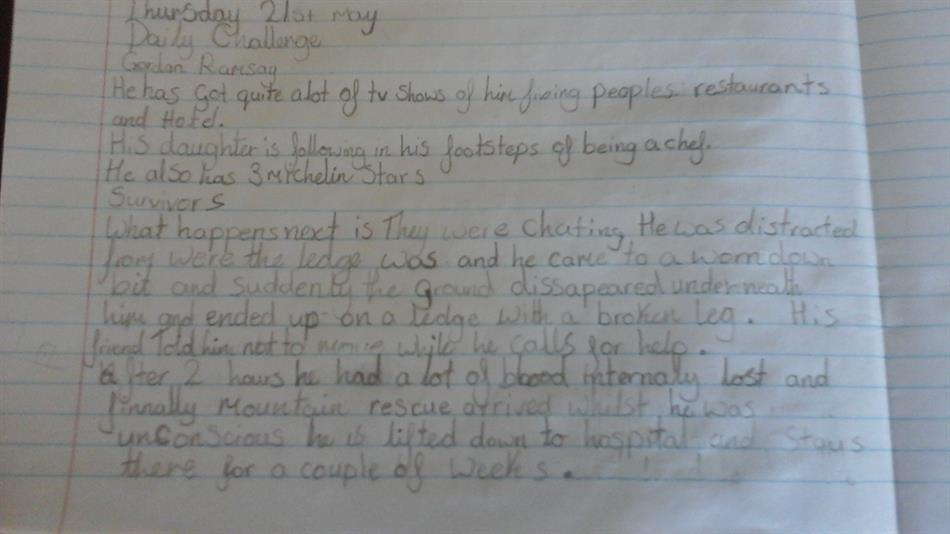 Thursday 21st May
Daily Challenge
Gordon Ramsay
He has Got quite alot of tv shows of him fixing peoples restaurants
and Hotel.
His daughter is following in his footsteps of being a chef.
He also has 3 Mitchelin Stars
Survivors
What happens next is They were Chating He was distracted
from were the ledge was and he came to a worn down
bit and suddenly the ground dissapeared underneath
him and ended up on a ledge with a broken leg. His
friend Told him not to while he calls for help.
After 2 hours he had a lot of blood internally lost and
finnally Mountain rescue arrived whilst he was
unconscious he is lifted down to hospital and Stays
there for a couple of weeks.